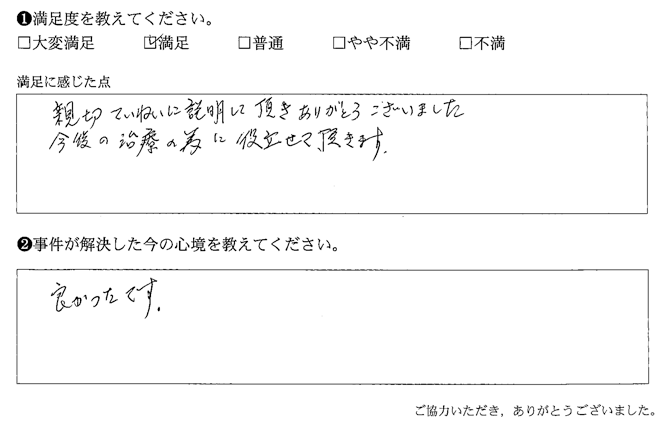 ❶満足度を教えてください。
□大変満足 ☑満足 □普通 □やや不満 □不満
満足に感じた点
親切ていねいに説明して頂きありがとうございました
今後の治療の為に役立せて頂きます。
❷事件が解決した今の心境を教えてください。
良かったです。
ご協力いただき，ありがとうございました。